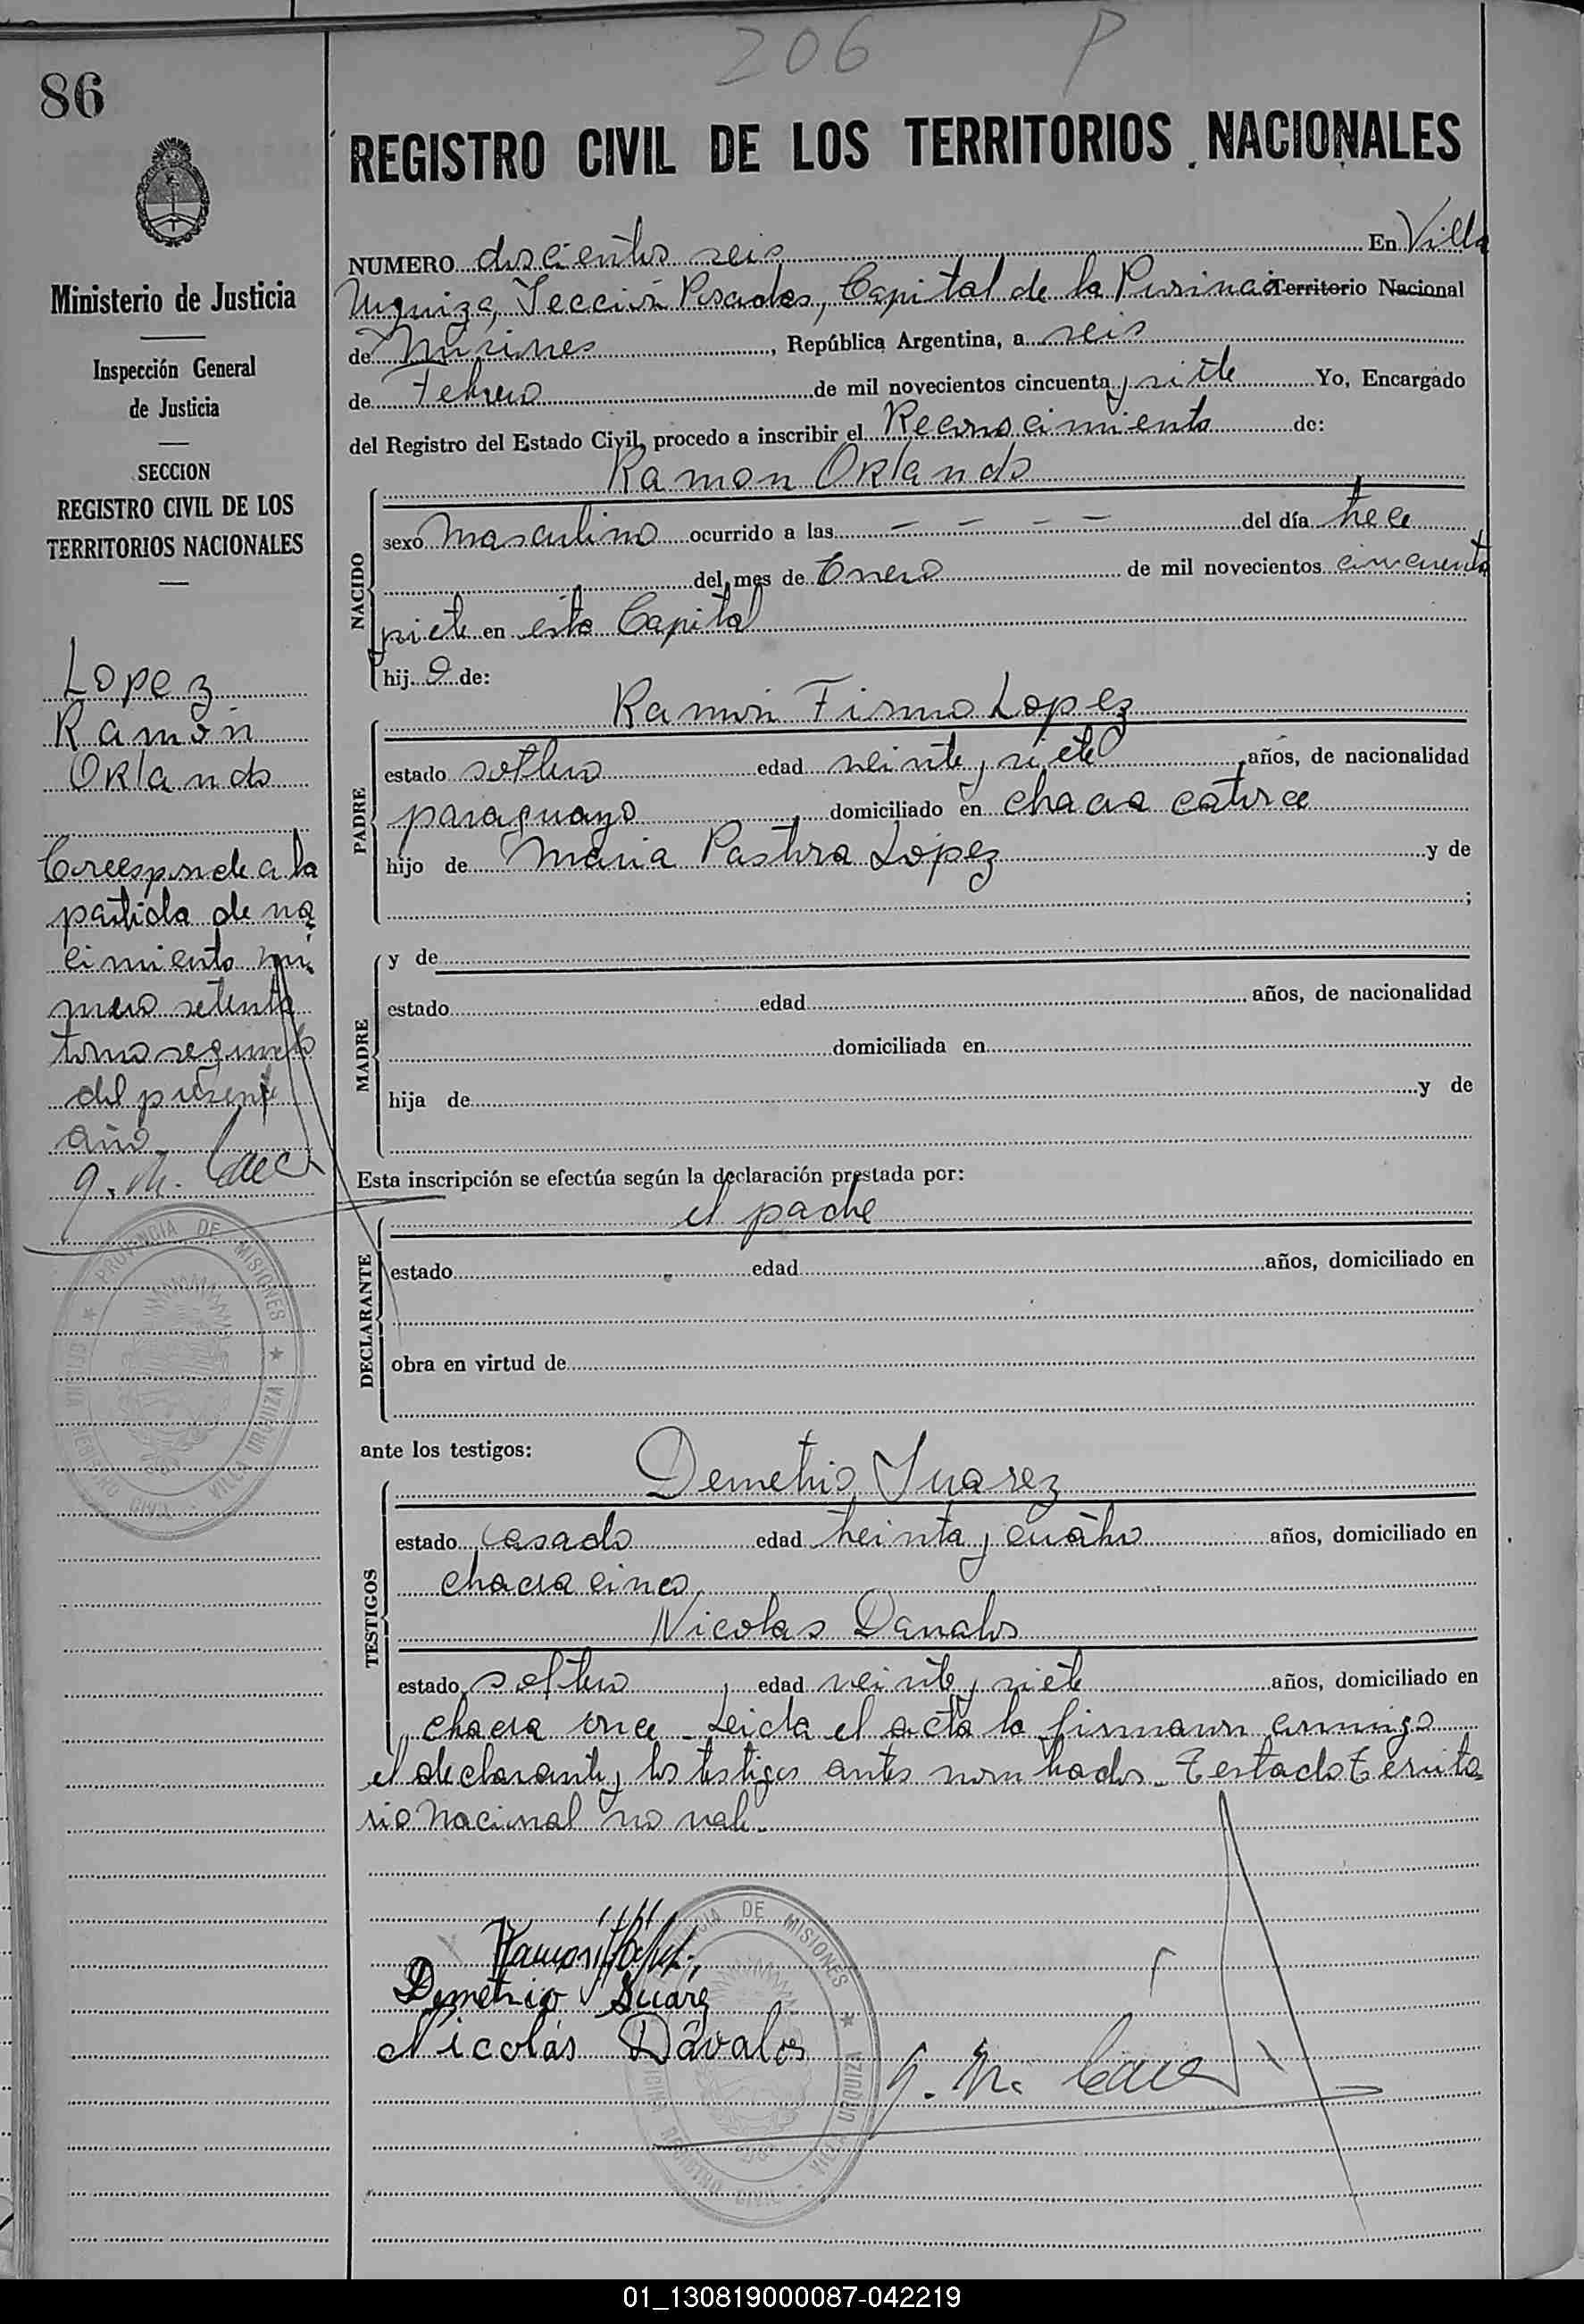 206 P
86
REGISTRO CIVIL DE LOS TERRITORIOS NACIONALES
Ministerio de Justicia
Inspección General
de Justicia
SECCION
REGISTRO CIVIL DE LOS
TERRITORIOS NACIONALES
Lopez
Ramón
Orlando
Corresponde a la
partida de na
cimiento nú
mero setenta
tomo segundo
del presente
año
PROVINCIA DE MISIONES ★ VILLA URQUIZA · REGISTRO CIVIL OFICINA ★
NUMERO doscientos seis En Villa
Urquiza, Sección Posadas, Capital de la Provincia Territorio Nacional
de Misiones, República Argentina, a seis
de Febrero de mil novecientos cincuenta y siete Yo, Encargado
del Registro del Estado Civil, procedo a inscribir el Reconocimiento de:
Ramon Orlando
NACIDO
sexo masculino ocurrido a las — — — — del día trece
del mes de Enero de mil novecientos cincuenta
y siete en esta Capital
hijo de:
Ramón Firmo Lopez
PADRE
estado soltero edad veinte y siete años, de nacionalidad
paraguayo domiciliado en chacra catorce
hijo de Maria Pastora López y de
;
MADRE
y de
estado edad años, de nacionalidad
domiciliada en
hija de y de
Esta inscripción se efectúa según la declaración prestada por:
el padre
DECLARANTE
estado edad años, domiciliado en
obra en virtud de
ante los testigos:
Demetrio Juarez
TESTIGOS
estado casado edad treinta y cuatro años, domiciliado en
chacra cinco
Nicolas Davalos
estado soltero, edad veinte y siete años, domiciliado en
chacra once - Leida el acta la firmaron conmigo
el declarante y los testigos antes nombrados - Testado Territo
rio Nacional no vale.-
Demetrio Suarez
Nicolás Dávalos
PROVINCIA DE MISIONES ★ VILLA URQUIZA · REGISTRO CIVIL OFICINA
01_130819000087-042219